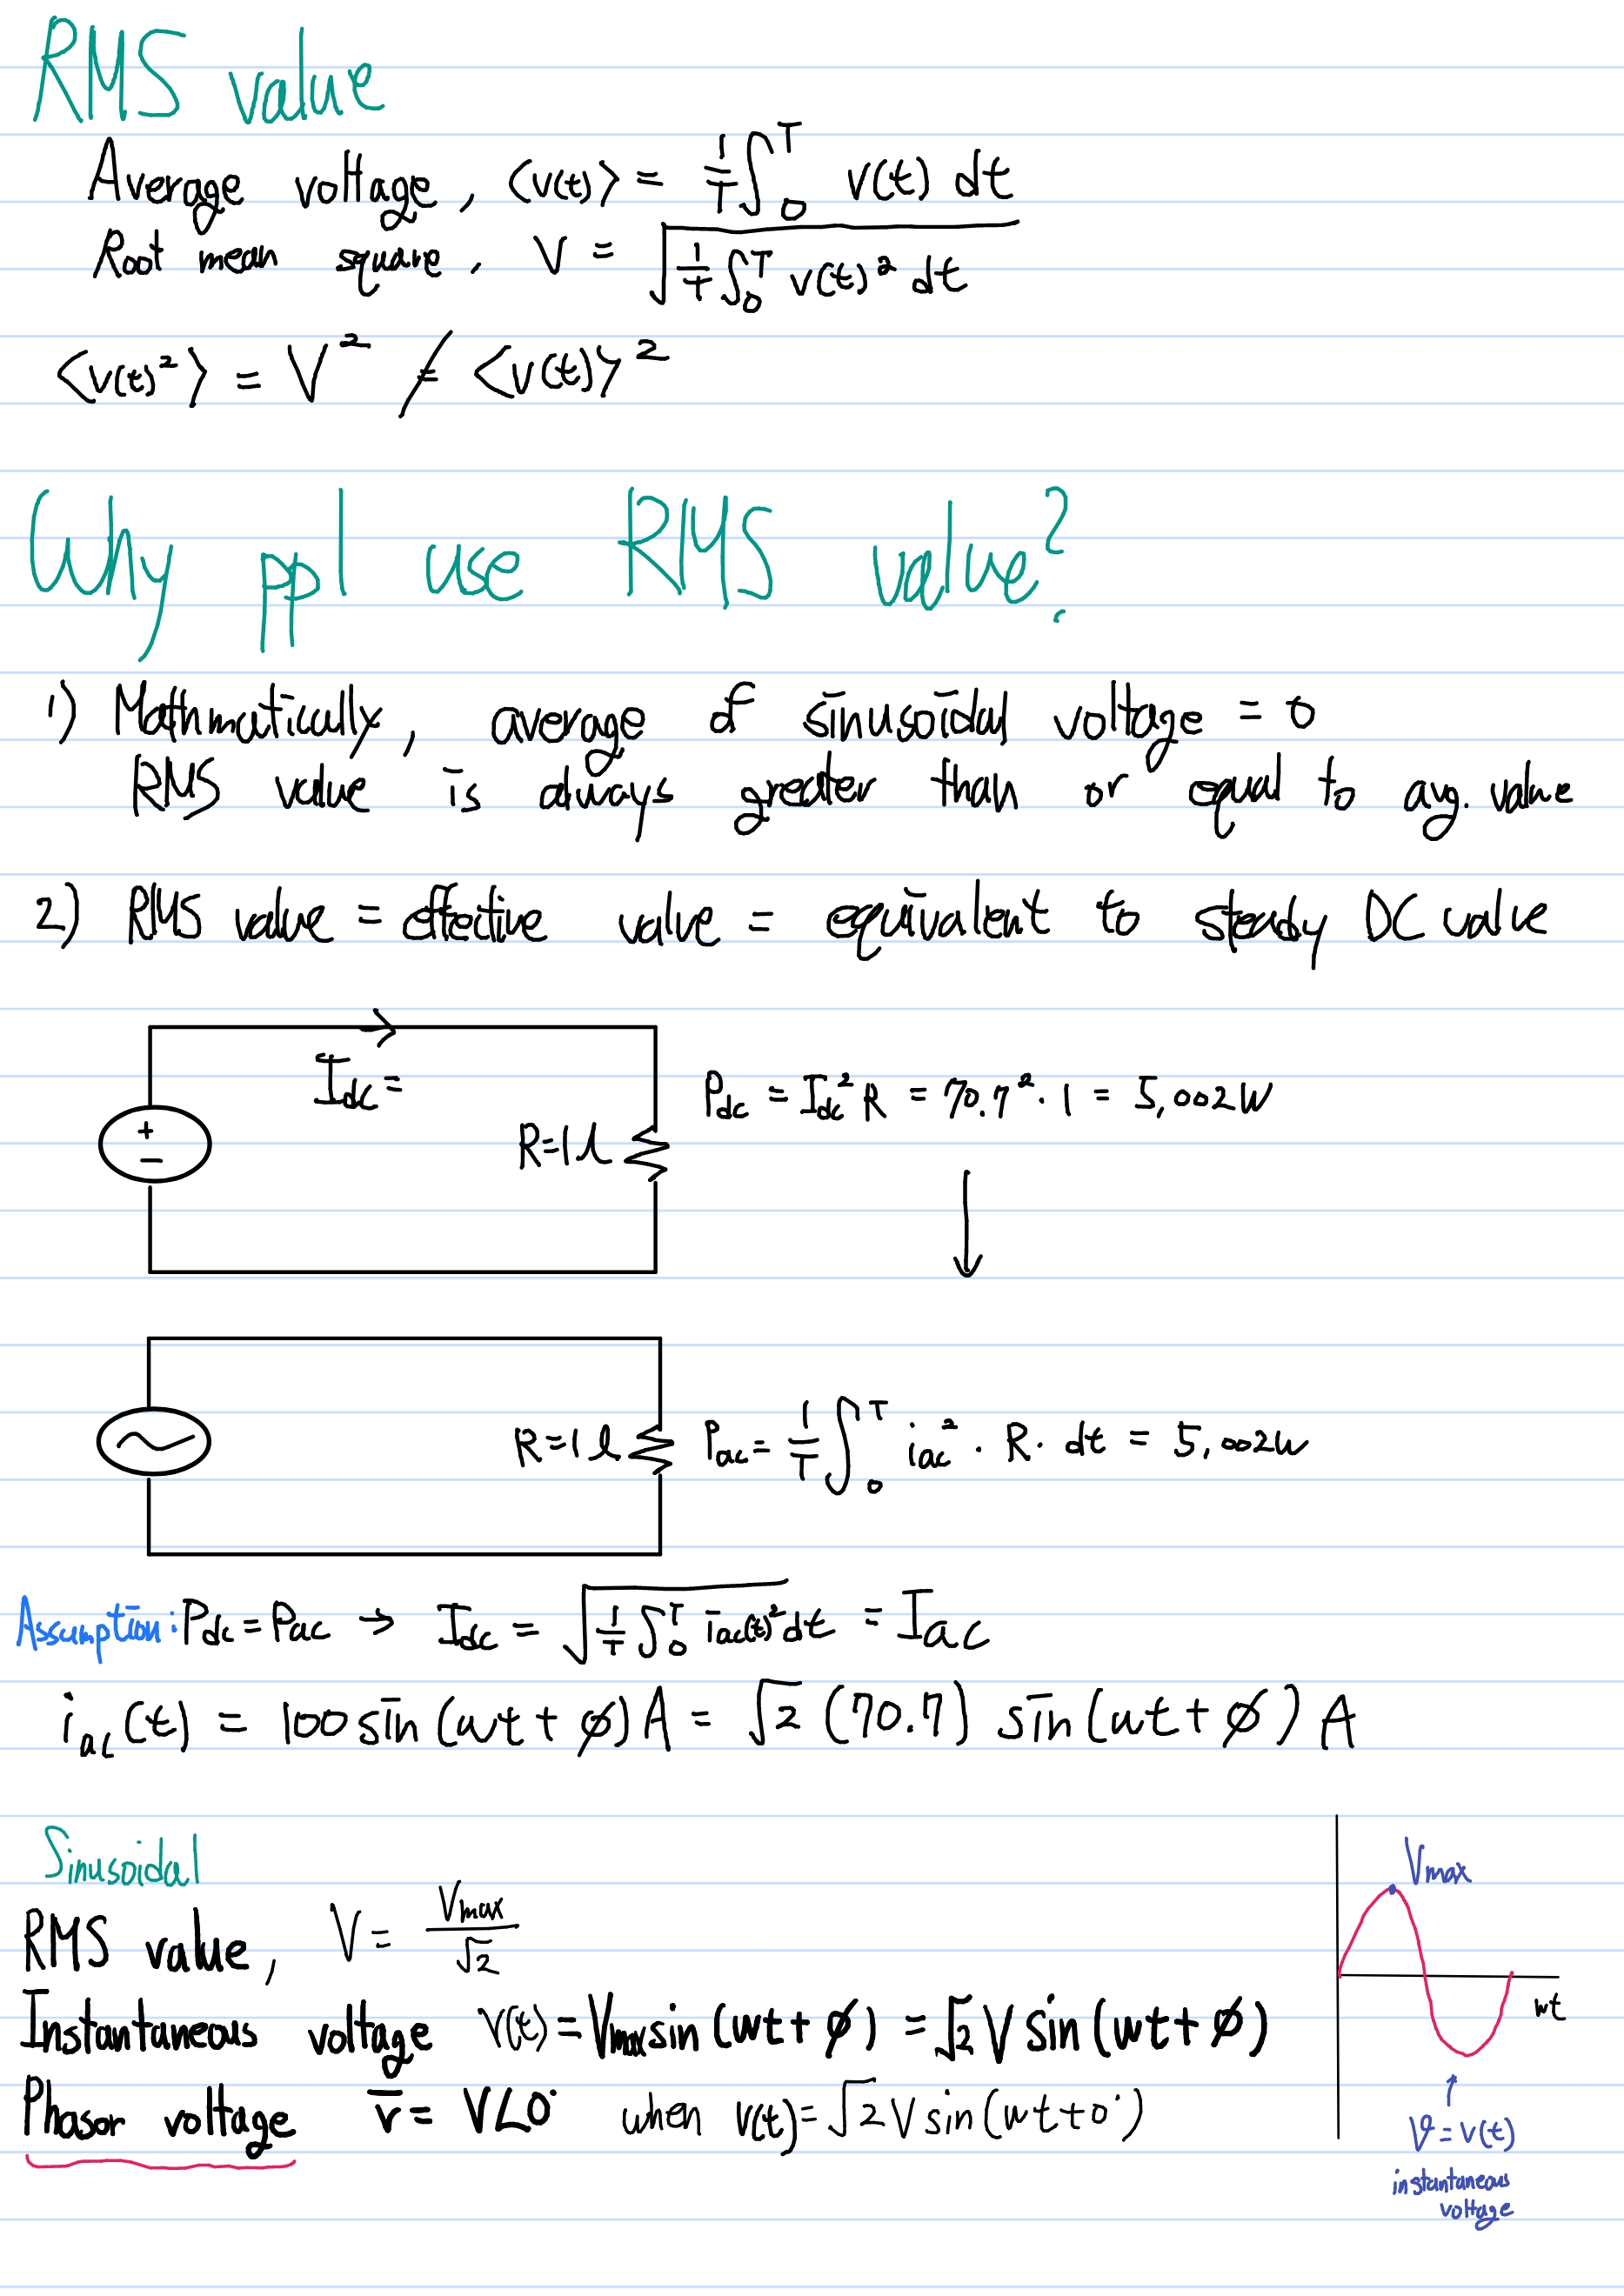 RMS value
Average voltage, <v(t)> = 1/T ∫₀ᵀ v(t) dt
Root mean square, V = √(1/T ∫₀ᵀ v(t)² dt)
<v(t)²> = V² ≠ <v(t)>²
Why ppl use RMS value?
1) Mathmatically, average of sinusoidal voltage = 0
RMS value is always greater than or equal to avg. value
2) RMS value = effective value = equivalent to steady DC value
I_dc =
+
−
R=1Ω
P_dc = I_dc² R = 70.7² · 1 = 5,002W
R=1Ω
P_ac = 1/T ∫₀ᵀ i_ac² · R · dt = 5,002W
Assumption: P_dc = P_ac → I_dc = √(1/T ∫₀ᵀ i_ac(t)² dt) = I_ac
i_ac(t) = 100 sin(ωt + φ) A = √2 (70.7) sin(ωt + φ) A
Sinusoidal
RMS value, V = V_max/√2
Instantaneous voltage v(t) = V_max sin(ωt + φ) = √2 V sin(ωt + φ)
Phasor voltage v̅ = V∠0° when v(t) = √2 V sin(ωt + 0°)
V_max
ωt
V = v(t)
instantaneous
voltage